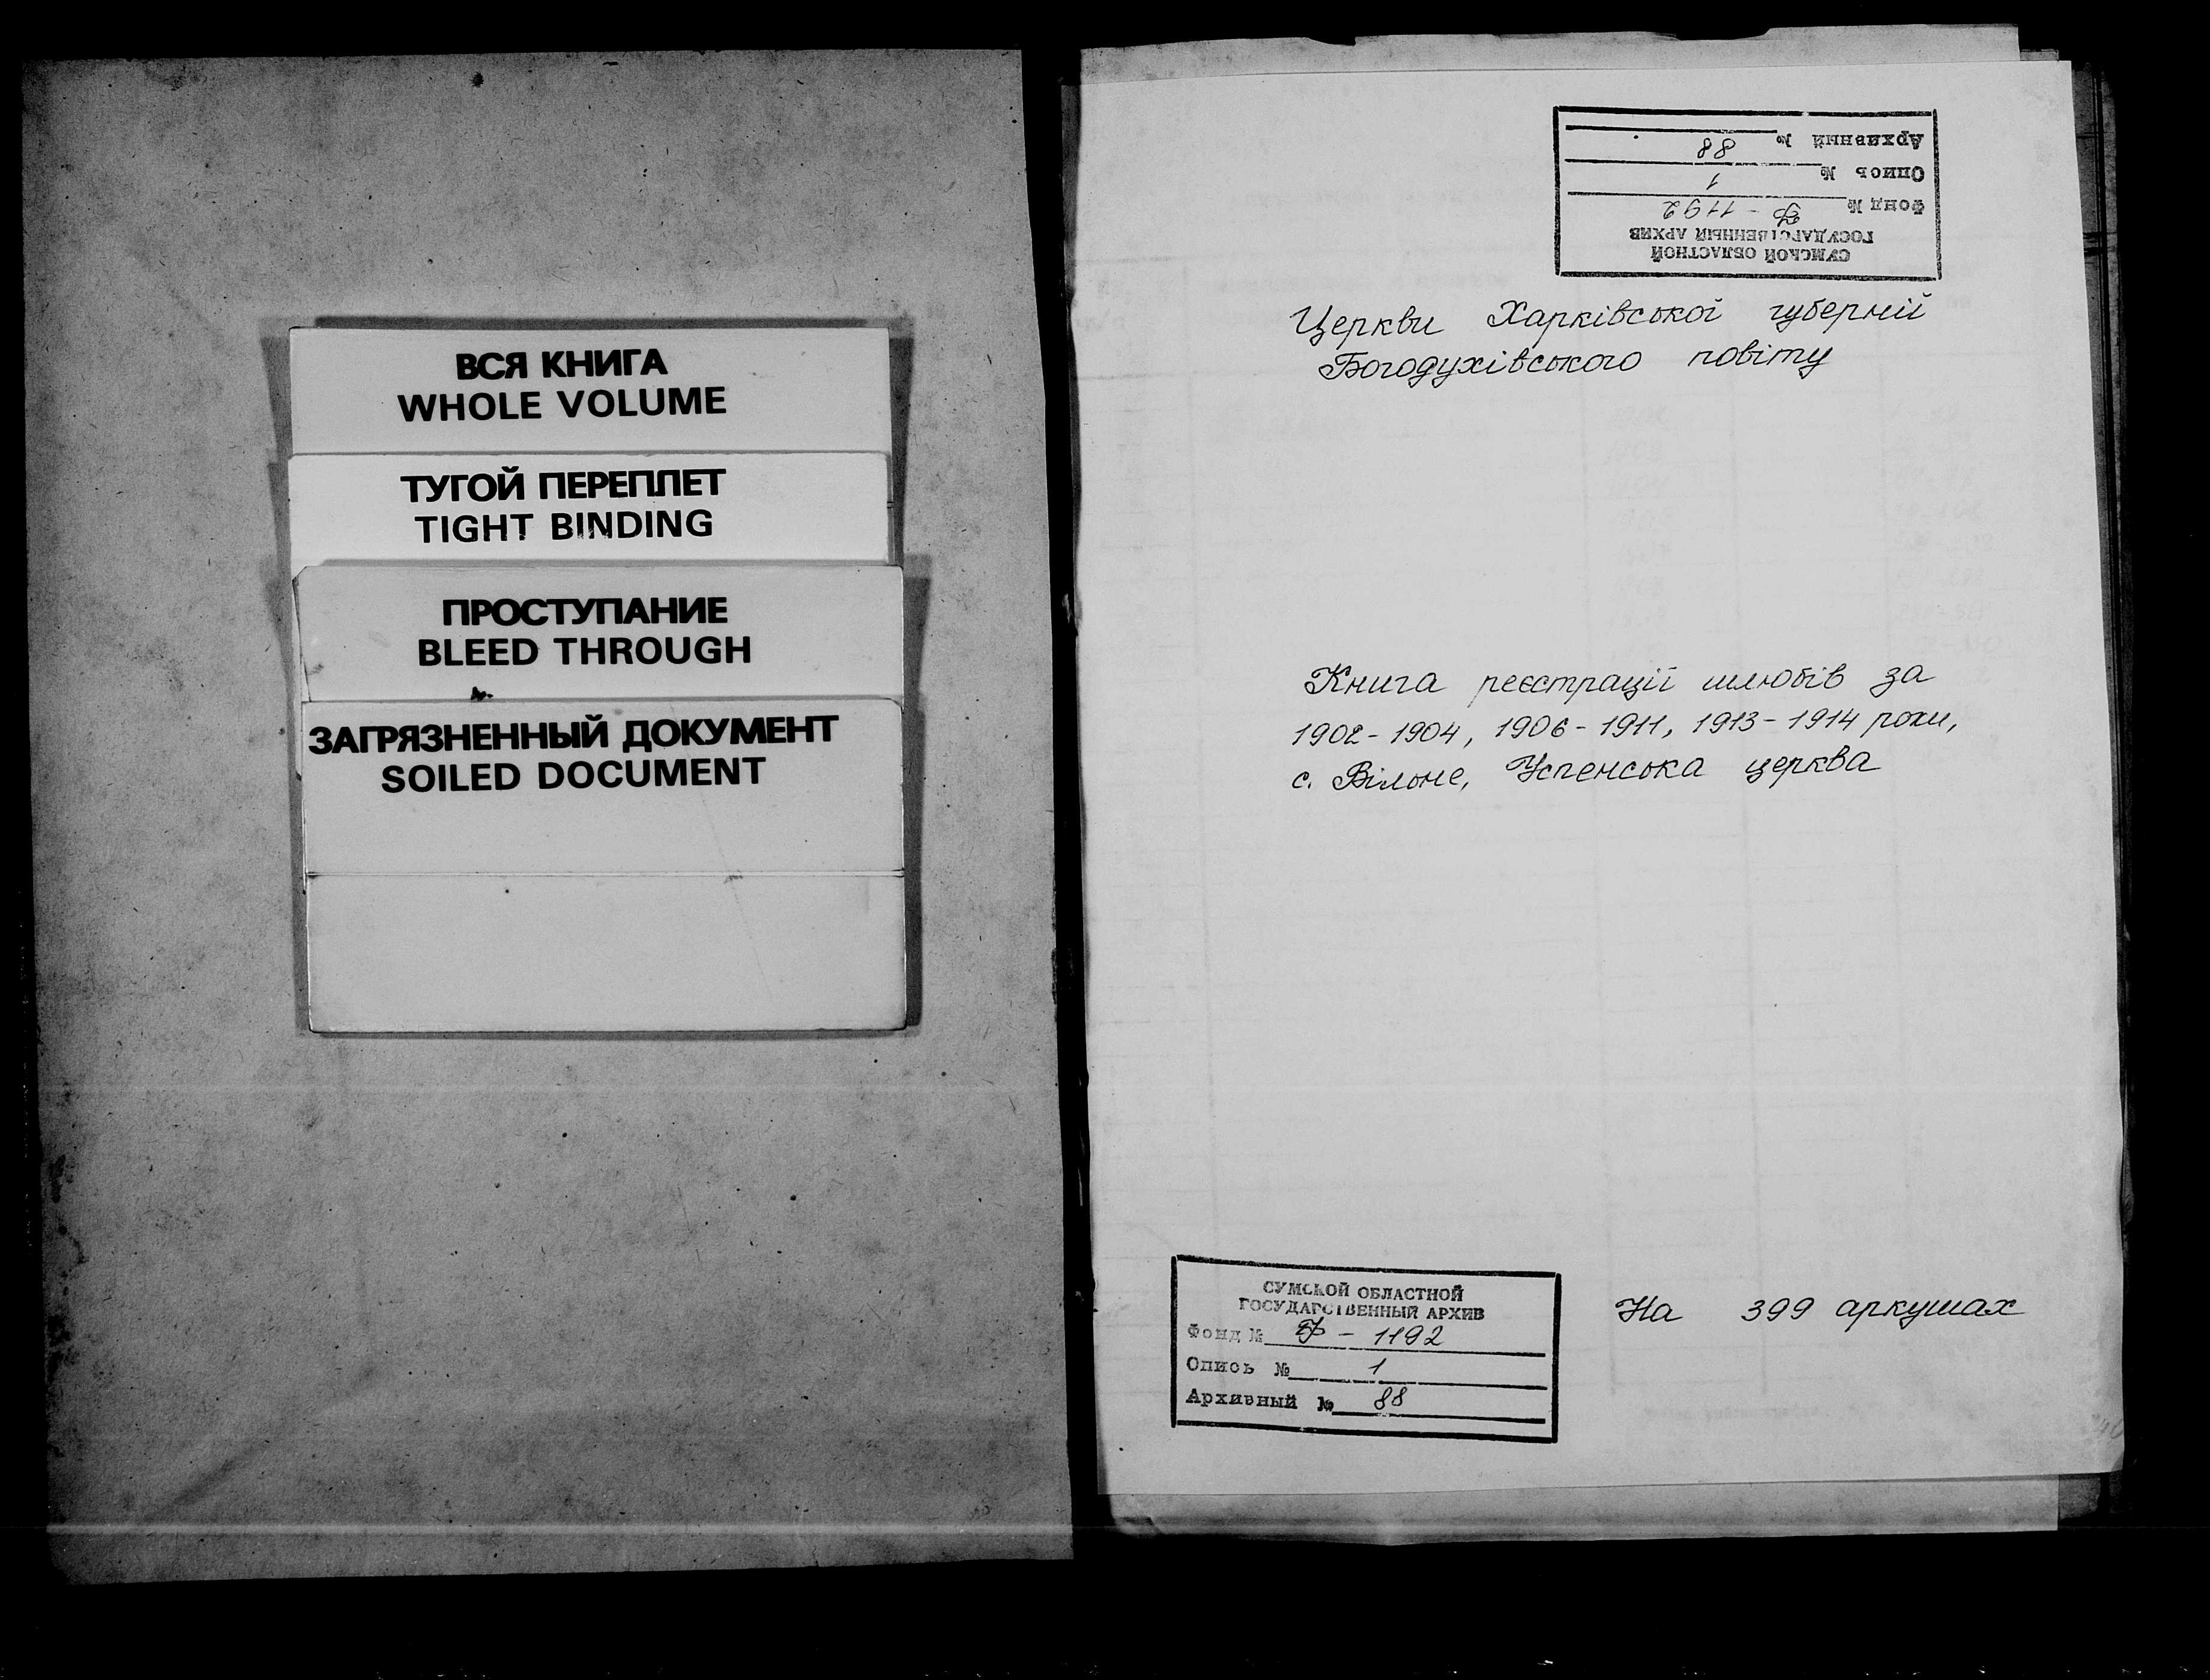 ВСЯ КНИГА
WHOLE VOLUME
ТУГОЙ ПЕРЕПЛЕТ
TIGHT BINDING
ПРОСТУПАНИЕ
BLEED THROUGH
ЗАГРЯЗНЕННЫЙ ДОКУМЕНТ
SOILED DOCUMENT
СУМСКОЙ ОБЛАСТНОЙ
ГОСУДАРСТВЕННЫЙ АРХИВ
Фонд № Ф - 1192
Опись № 1
Архивный № 88
Церкви Харківської губерній
Богодухівського повіту
Книга реєстрації шлюбів за
1902-1904, 1906-1911, 1913-1914 роки,
с. Вільне, Успенська церква
СУМСКОЙ ОБЛАСТНОЙ
ГОСУДАРСТВЕННЫЙ АРХИВ
Фонд № Ф - 1192
Опись № 1
Архивный № 88
На 399 аркушах